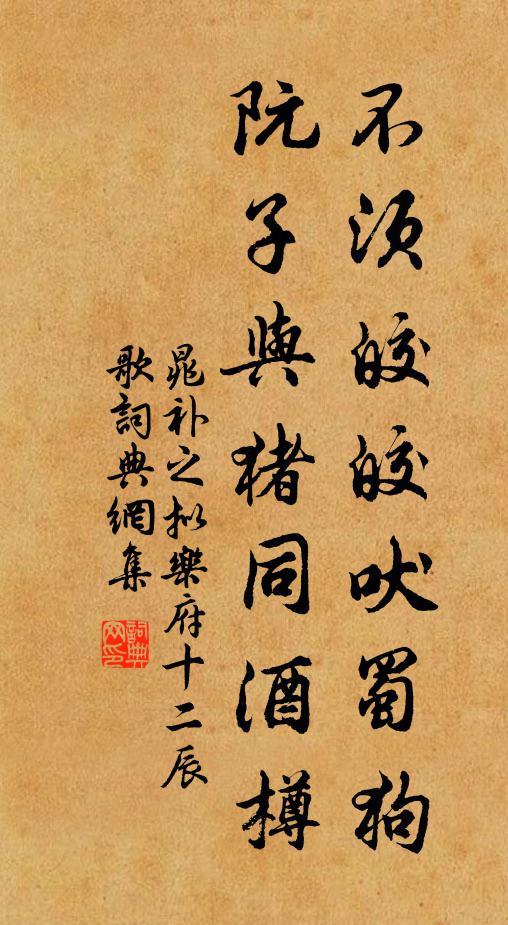 不須皎皎吠蜀狗
阮子與猪同酒樽
晁补之拟樂府十二辰
歌詞典網集
詞典
网印